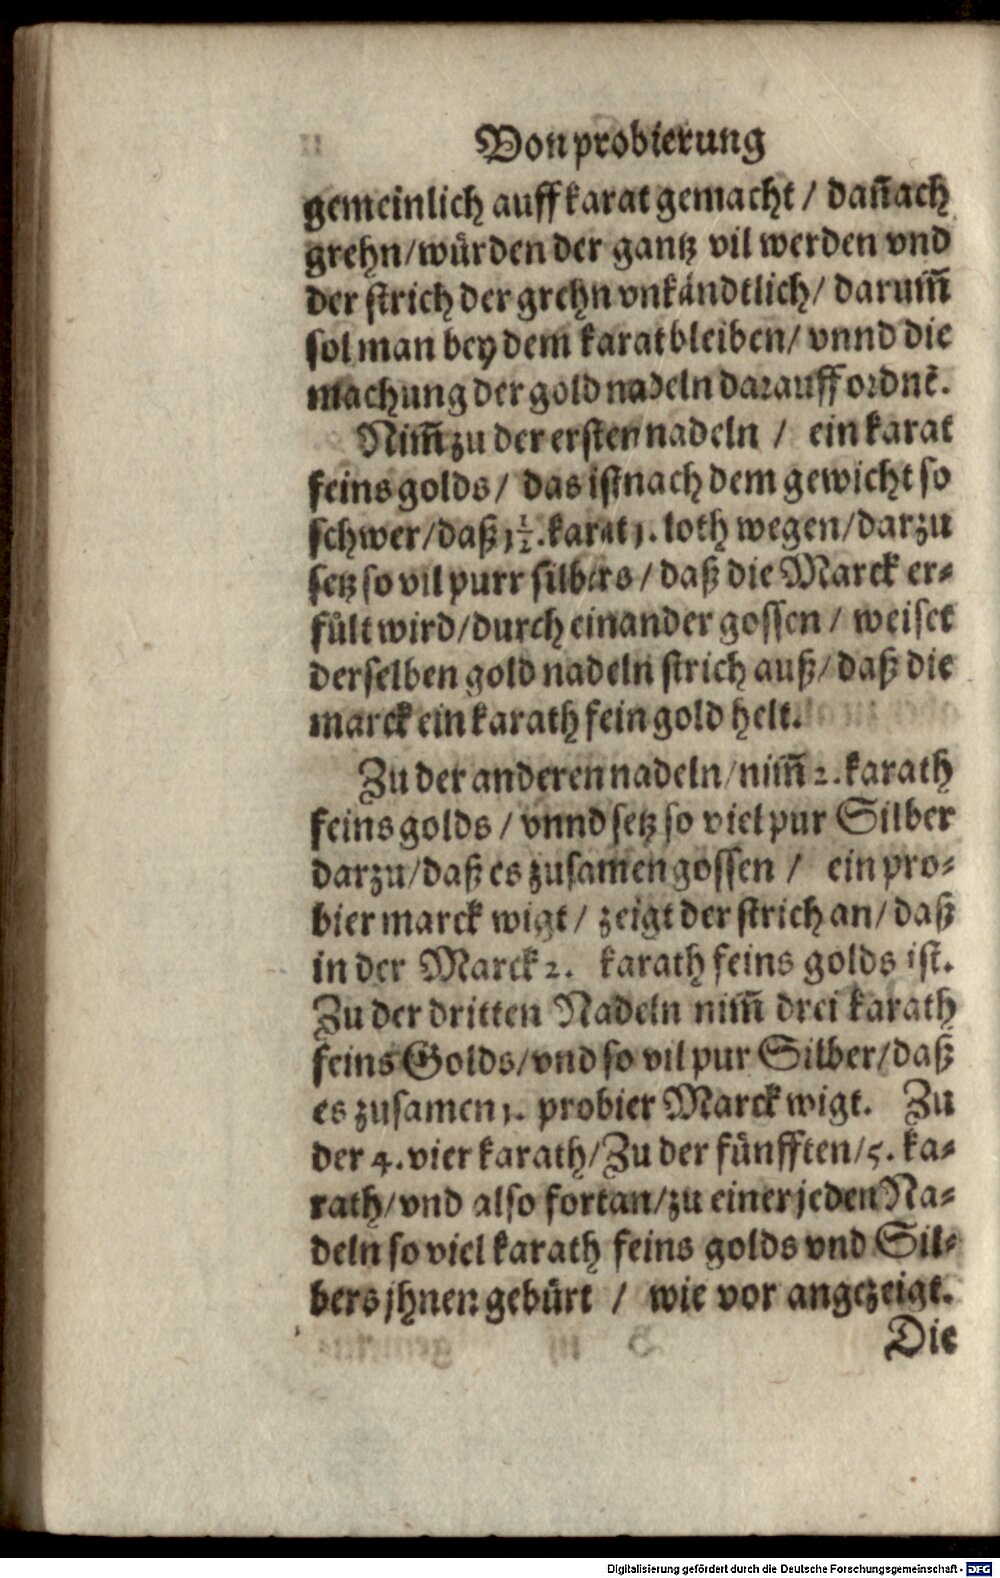 Von probierung
gemeinlich auff karat gemacht / dañach
grehn/würden der gantz vil werden vnd
der strich der grehn vnkändtlich/ darum̃
sol man bey dem karat bleiben/ vnnd die
machung der gold nadeln darauff ordnẽ.
Nim̃ zu der ersten nadeln / ein karat
feins golds / das ist nach dem gewicht so
schwer/daß 1½. karat 1. loth wegen/darzu
setz so vil purr silbers / daß die Marck er-
fült wird/durch einander gossen / weiset
derselben gold nadeln strich auß/ daß die
marck ein karath fein gold helt.
Zu der anderen nadeln/nim̃ 2. karath
feins golds / vnnd setz so viel pur Silber
darzu/daß es zusamen gossen / ein pro-
bier marck wigt / zeigt der strich an/ daß
in der Marck 2. karath feins golds ist.
Zu der dritten Nadeln nim̃ drei karath
feins Golds/vnd so vil pur Silber/daß
es zusamen 1. probier Marck wigt. Zu
der 4. vier karath/Zu der fünfften/5. ka-
rath/vnd also fortan/zu einer jeden Na-
deln so viel karath feins golds vnd Sil-
bers jhnen gebürt / wie vor angezeigt.
Die
Digitalisierung gefördert durch die Deutsche Forschungsgemeinschaft - DFG